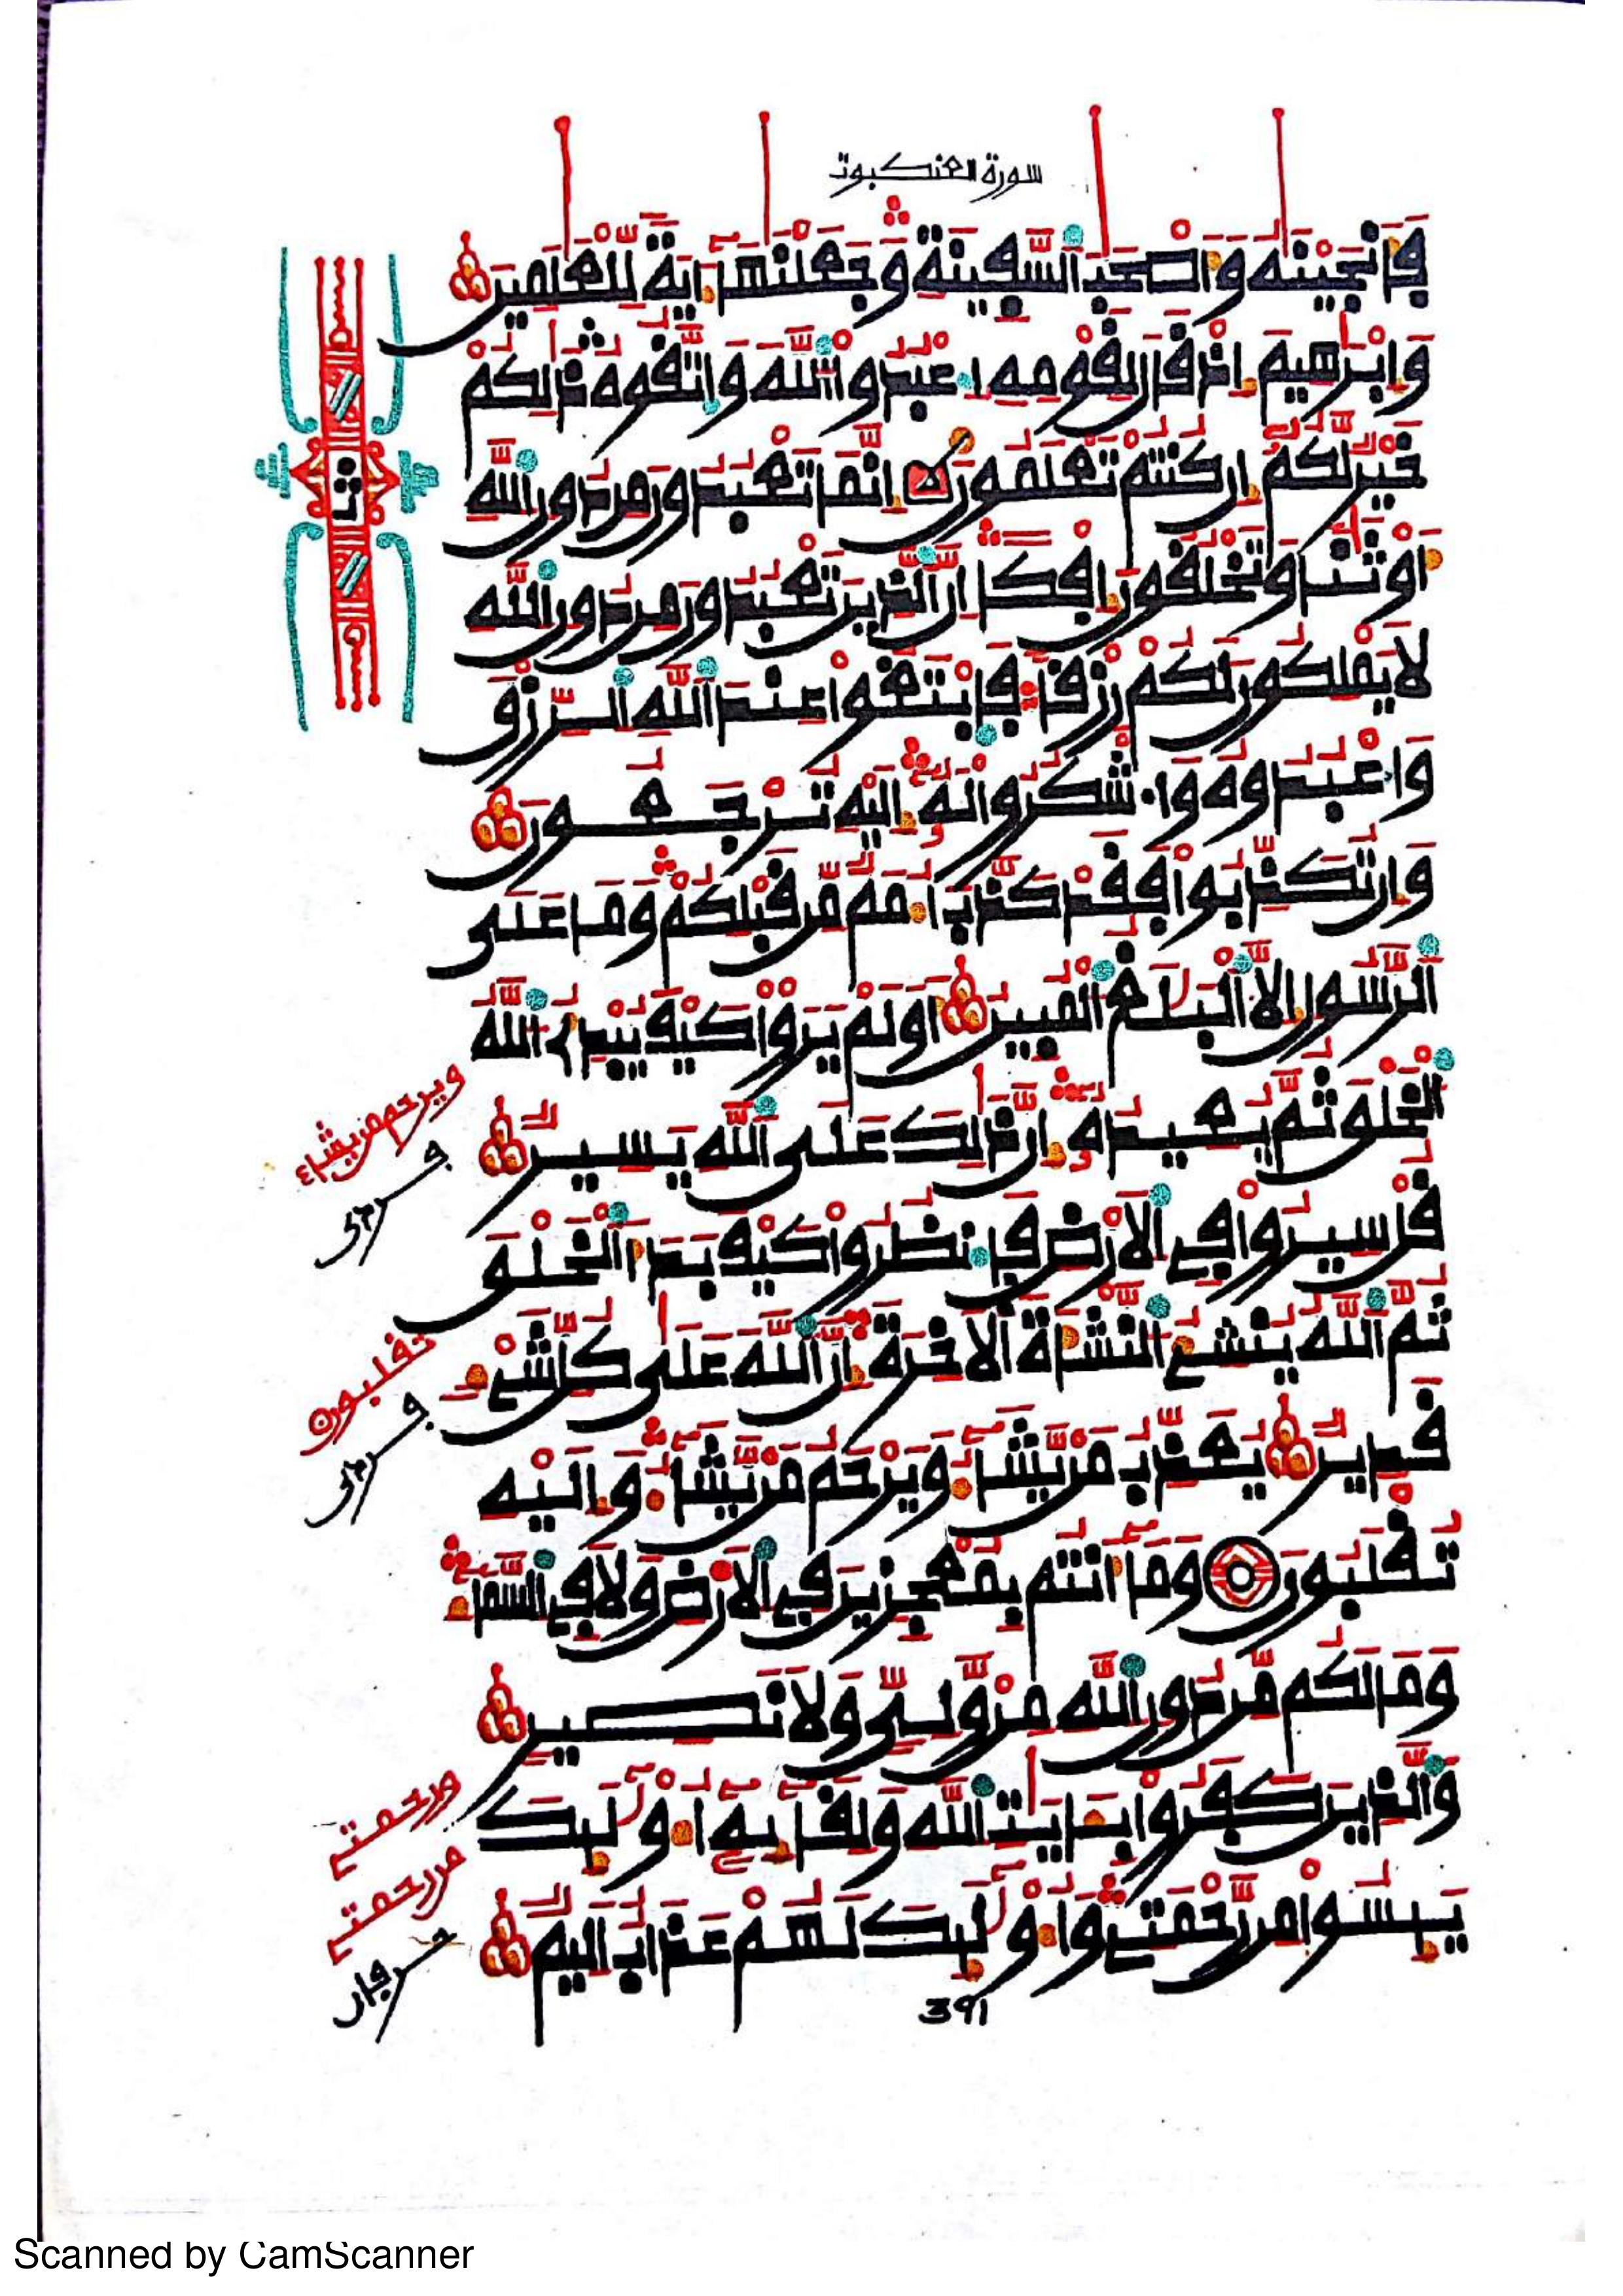 سورة العنكبوت
فَأَنجَيْنَٰهُ وَأَصْحَٰبَ ٱلسَّفِينَةِ وَجَعَلْنَٰهَآ ءَايَةً لِّلْعَٰلَمِينَ
وَإِبْرَٰهِيمَ إِذْ قَالَ لِقَوْمِهِ ٱعْبُدُوا۟ ٱللَّهَ وَٱتَّقُوهُ ذَٰلِكُمْ
خَيْرٌ لَّكُمْ إِن كُنتُمْ تَعْلَمُونَ إِنَّمَا تَعْبُدُونَ مِن دُونِ ٱللَّهِ
أَوْثَٰنًا وَتَخْلُقُونَ إِفْكًا إِنَّ ٱلَّذِينَ تَعْبُدُونَ مِن دُونِ ٱللَّهِ
لَا يَمْلِكُونَ لَكُمْ رِزْقًا فَٱبْتَغُوا۟ عِندَ ٱللَّهِ ٱلرِّزْقَ
وَٱعْبُدُوهُ وَٱشْكُرُوا۟ لَهُۥٓ إِلَيْهِ تُرْجَعُونَ
وَإِن تُكَذِّبُوا۟ فَقَدْ كَذَّبَ أُمَمٌ مِّن قَبْلِكُمْ وَمَا عَلَى
ٱلرَّسُولِ إِلَّا ٱلْبَلَٰغُ ٱلْمُبِينُ أَوَلَمْ يَرَوْا۟ كَيْفَ يُبْدِئُ ٱللَّهُ
ٱلْخَلْقَ ثُمَّ يُعِيدُهُۥٓ إِنَّ ذَٰلِكَ عَلَى ٱللَّهِ يَسِيرٌ
قُلْ سِيرُوا۟ فِى ٱلْأَرْضِ فَٱنظُرُوا۟ كَيْفَ بَدَأَ ٱلْخَلْقَ
ثُمَّ ٱللَّهُ يُنشِئُ ٱلنَّشْأَةَ ٱلْءَاخِرَةَ إِنَّ ٱللَّهَ عَلَىٰ كُلِّ شَىْءٍ
قَدِيرٌ يُعَذِّبُ مَن يَشَآءُ وَيَرْحَمُ مَن يَشَآءُ وَإِلَيْهِ
تُقْلَبُونَ وَمَآ أَنتُم بِمُعْجِزِينَ فِى ٱلْأَرْضِ وَلَا فِى ٱلسَّمَآءِ
وَمَا لَكُم مِّن دُونِ ٱللَّهِ مِن وَلِىٍّ وَلَا نَصِيرٍ
وَٱلَّذِينَ كَفَرُوا۟ بِـَٔايَٰتِ ٱللَّهِ وَلِقَآئِهِۦٓ أُو۟لَٰٓئِكَ
يَئِسُوا۟ مِن رَّحْمَتِى وَأُو۟لَٰٓئِكَ لَهُمْ عَذَابٌ أَلِيمٌ
ويرحم من يشاء
تقلبون
ورحمتى
من رحمتى
391
Scanned by CamScanner